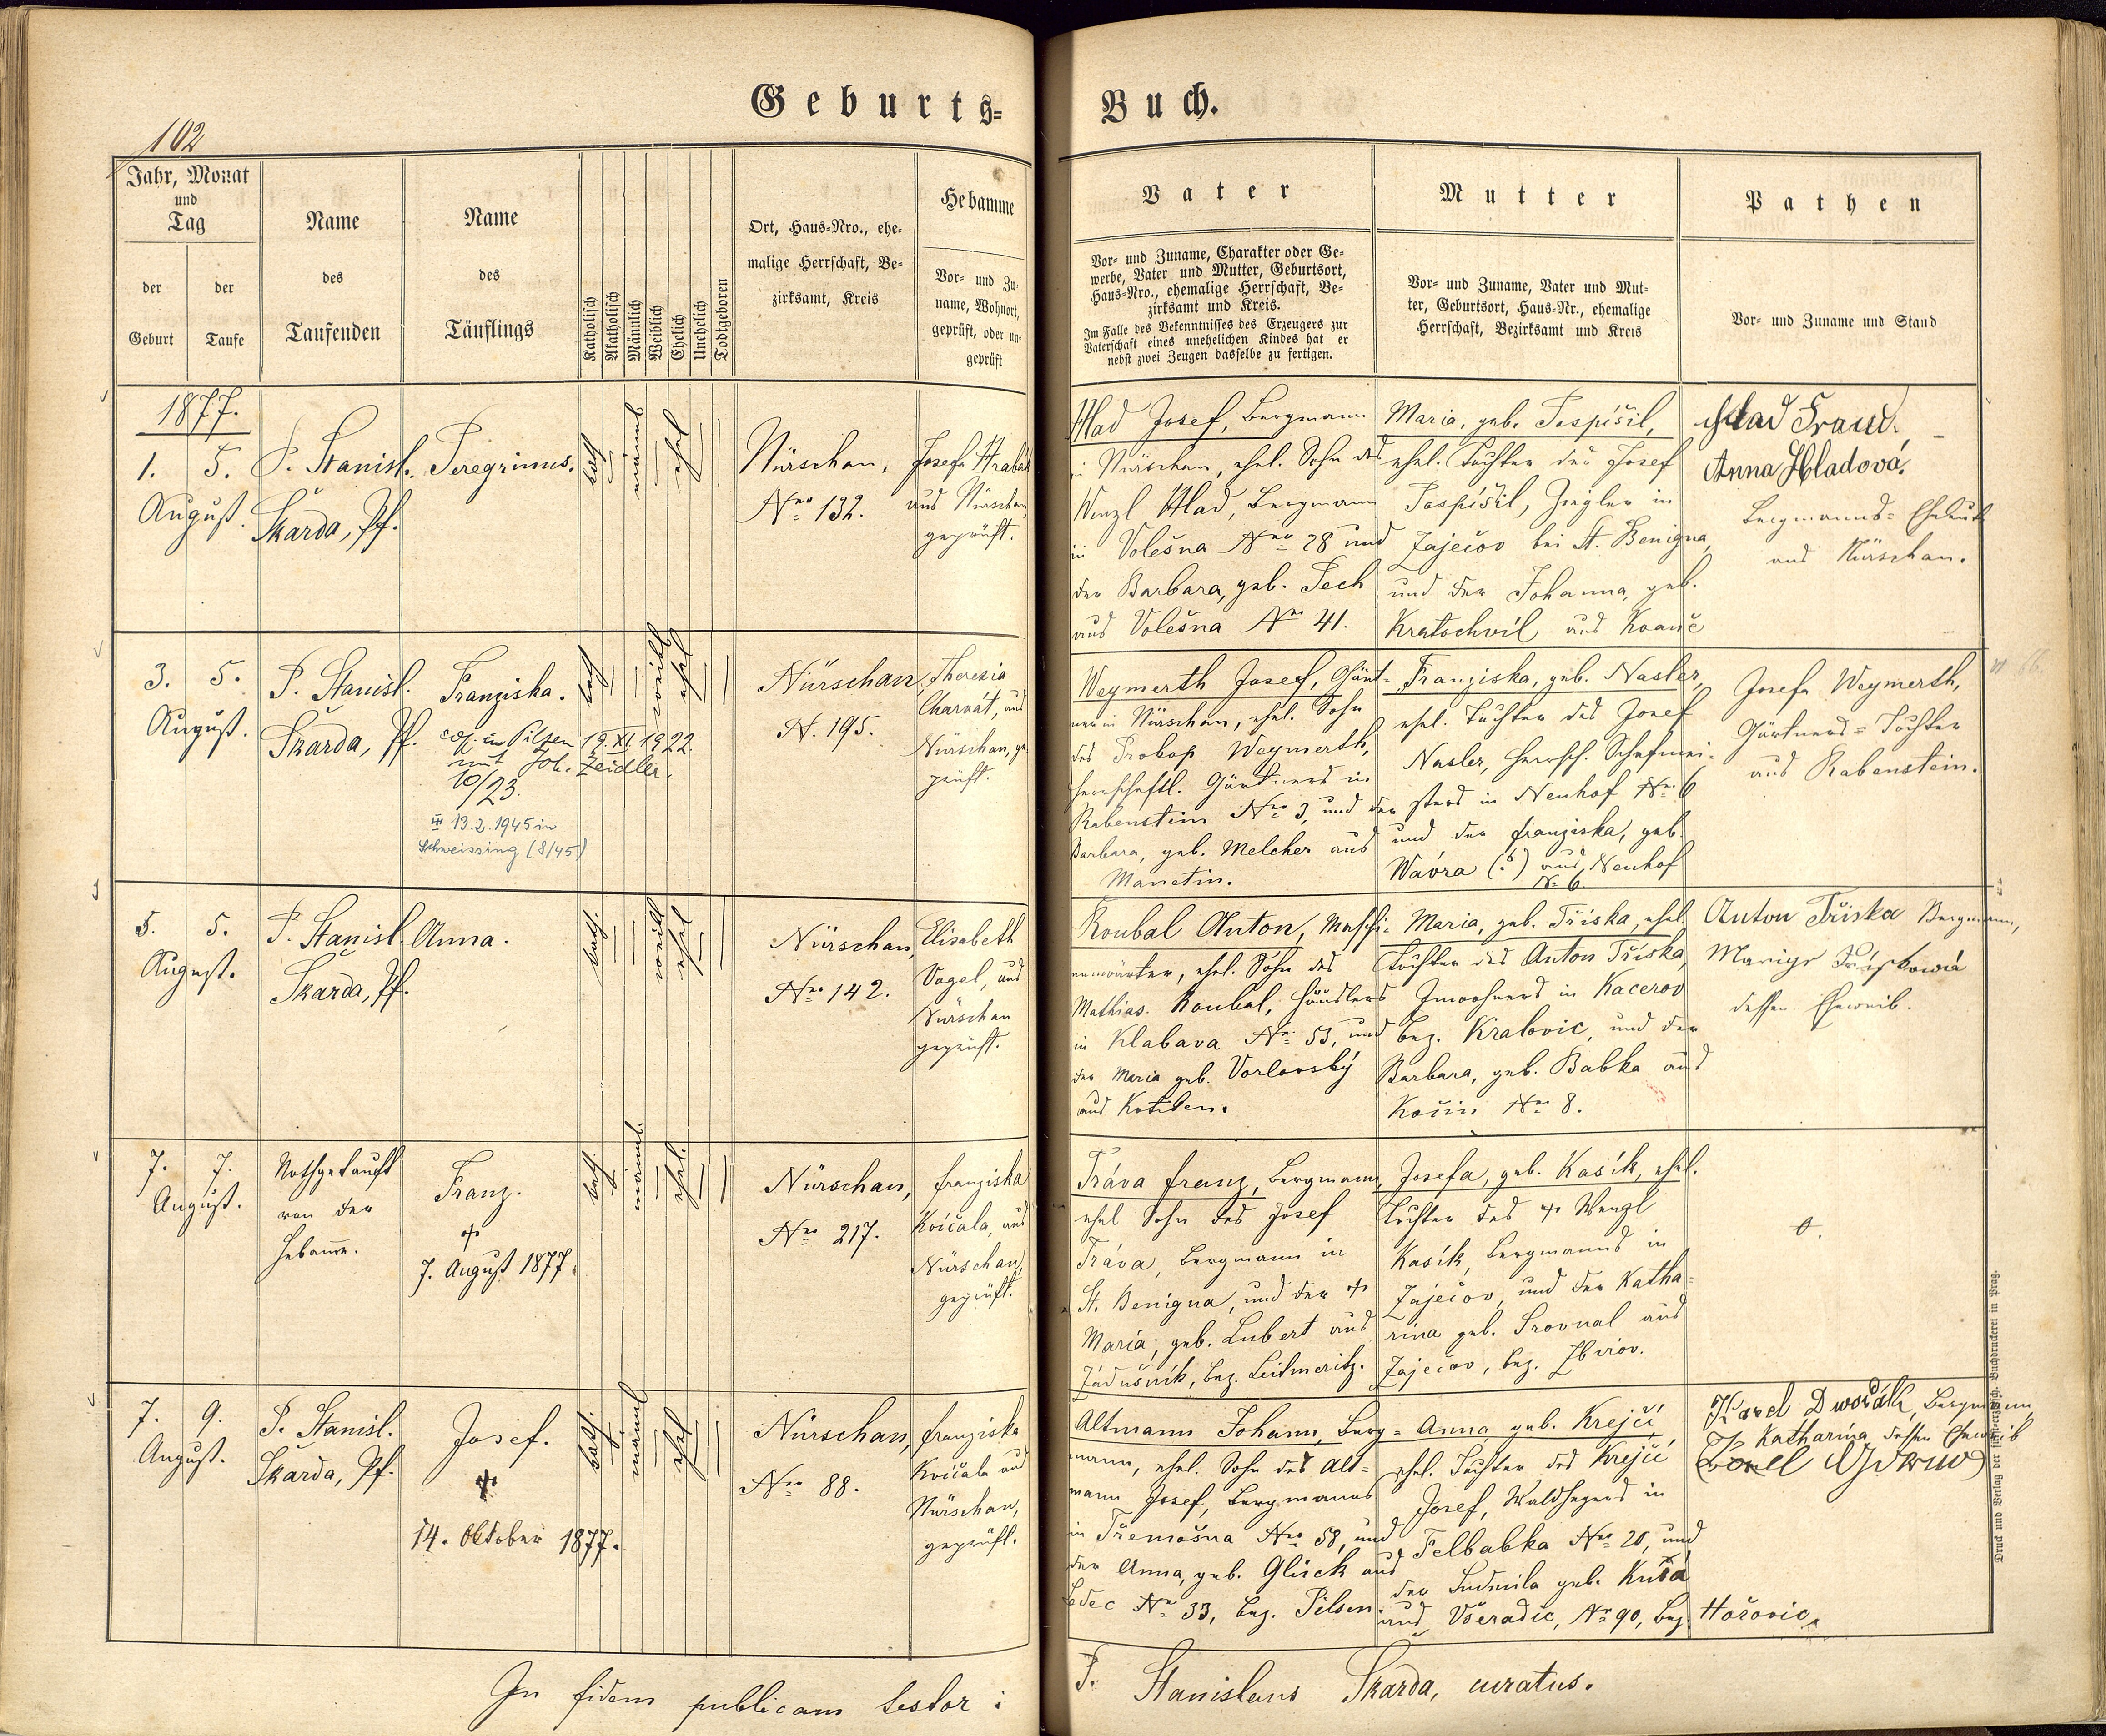 Geburts=
Buch.
102
Jahr, Monat
und
Tag
der
Geburt
der
Taufe
Name
des
Taufenden
Name
des
Täuflings
Katholisch
Akatholisch
Männlich
Weiblich
Ehelich
Unehelich
Todtgeboren
Ort, Haus=Nro., ehe=
malige Herrschaft, Be=
zirksamt, Kreis
Hebamme
Vor= und Zu=
name, Wohnort,
geprüft, oder un=
geprüft
Vater
Vor= und Zuname, Charakter oder Ge=
werbe, Vater und Mutter, Geburtsort,
Haus=Nro., ehemalige Herrschaft, Be=
zirksamt und Kreis.
Im Falle des Bekenntnisses des Erzeugers zur
Vaterschaft eines unehelichen Kindes hat er
nebst zwei Zeugen dasselbe zu fertigen.
Mutter
Vor= und Zuname, Vater und Mut=
ter, Geburtsort, Haus=Nr., ehemalige
Herrschaft, Bezirksamt und Kreis
Pathen
Vor= und Zuname und Stand
1877.
1. 5.
August.
P. Stanisl.
Škarda, Pf.
Peregrinus.
kath
männl
ehel
Nürschan,
Nro 132.
Josefa Hrabák
aus Nürschan
geprüft.
Hlad Josef, Bergmann
in Nürschan, ehel. Sohn des
Wenzl Hlad, Bergmann
in Volešna Nro 28 und
der Barbara, geb. Pech
aus Volešna Nro 41.
Maria, geb. Pospíšil,
ehel. Tochter des Josef
Pospíšil, Ziegler in
Zaječov bei St. Benigna,
und der Johanna, geb.
Kratochvíl aus
Hlad
Anna Hladová,
Bergmanns=Eheleute
aus Nürschan.
3. 5.
August.
P. Stanisl.
Škarda, Pf.
Franziska.
cop. in Pilsen 19.XI.1922
mit Joh. Zeidler.
10/23.
13.2.1945 in
Schweissing (8/45)
kath
weibl
ehel
Nürschan
N. 195.
Theresia
Charvát, aus
Nürschan, ge=
prüft.
Weymerth Josef, Gärt=
ner in Nürschan, ehel. Sohn
des Prokop Weymerth,
herrschaftl. Gärtners in
Rabenstein Nro 3, und der
Barbara, geb. Melcher aus
Manetin.
Franziska, geb. Nasler,
ehel. Tochter des Josef
Nasler, herrsch. Schafmei=
sters in Neuhof Nro 6
und der Franziska, geb.
Wavra (?) aus Neuhof
N. 6.
Josefa Weymerth,
Gärtners=Tochter
aus Rabenstein.
5. 5.
August.
P. Stanisl.
Škarda, Pf.
Anna.
kath.
weibl
ehel
Nürschan,
Nro 142.
Elisabeth
Vogel, aus
Nürschan
geprüft.
Roubal Anton, Maschi=
nenwärter, ehel. Sohn des
Mathias Roubal, Häuslers
in Klabava Nro 53, und
der Maria geb. Vorlovský
aus
Maria, geb. Tříska, ehel.
Tochter des Anton Tříska,
Inwohners in Kacerov
bez. Kralovic, und der
Barbara, geb. Babka aus
Kočin Nro 8.
Anton Tříska Bergmann,
dessen Eheweib.
7. 7.
August.
Nothgetauft
von der
Hebamme.
Franz.
†
7. August 1877.
kath.
männl.
ehel.
Nürschan,
Nro 217.
Franziska
Kvíčala, aus
Nürschan,
geprüft.
Tráva Franz, Bergmann,
ehel Sohn des Josef
Tráva, Bergmann in
St. Benigna, und der †
Maria, geb. Lubert aus
Zádušník, bez. Leitmeritz.
Josefa, geb. Kasík, ehel.
Tochter des † Wenzl
Kasík, Bergmanns in
Zaječov, und der Katha=
rina geb. Srovnal aus
Zaječov, bez. Zbirov.
0.
7. 9.
August.
P. Stanisl.
Škarda, Pf.
Josef.
†
14. Oktober 1877.
kath.
männl
ehel
Nürschan,
Nro 88.
Franziska
Kvíčala aus
Nürschan,
geprüft.
Altmann Johann, Berg=
mann, ehel. Sohn des Alt=
mann Josef, Bergmanns
in Třemošna Nro 58, und
der Anna, geb. Glück aus
Ledec Nro 33, bez. Pilsen.
Anna geb. Krejčí,
ehel. Tochter des Krejčí
Josef, Waldhegers in
Felbabka Nro 20, und
der Ludmila geb.
aus Všeradic, Nr 90, bez. Hořovic.
Karel Dwořák, Bergmann
Katharina dessen Eheweib
In fidem publicam testor:
P. Stanislaus Škarda, curatus.